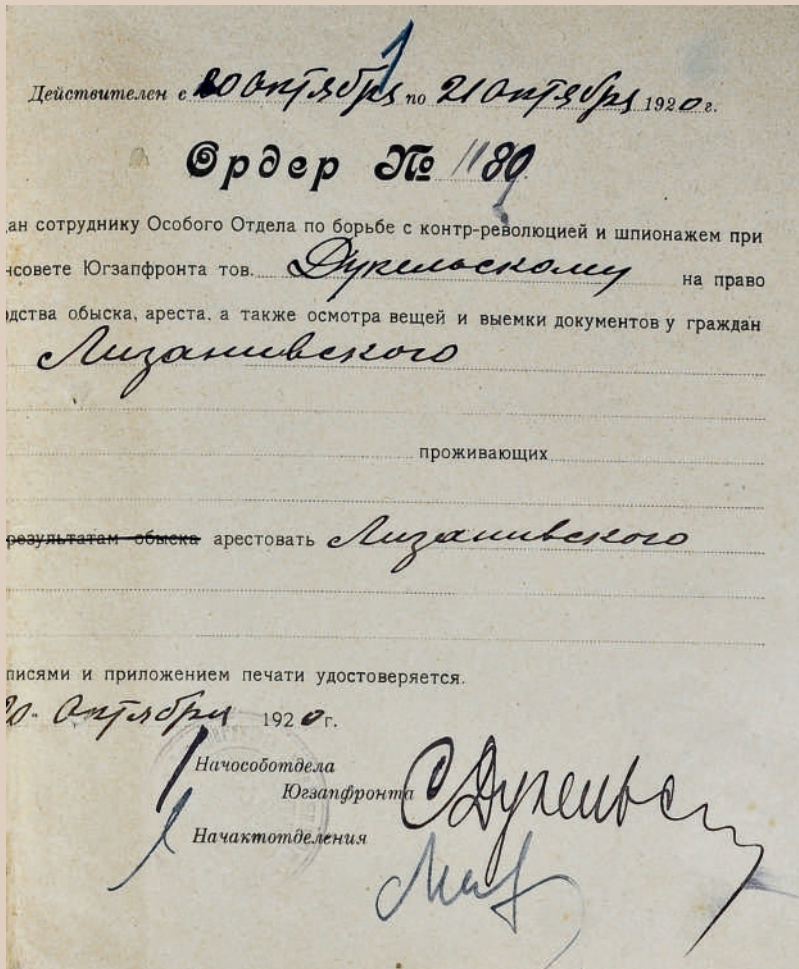 Действителен с 20 октября по 21 октября 1920 г.
Ордер № 1189
ан сотруднику Особого Отдела по борьбе с контр-революцией и шпионажем при
нсовете Югзапфронта тов. Дукельскому на право
дства обыска, ареста, а также осмотра вещей и выемки документов у граждан
Лизанивского
проживающих
результатам обыска арестовать Лизанивского
писями и приложением печати удостоверяется.
20 - Октября 1920 г.
Начособотдела
Югзапфронта
Начактотделения